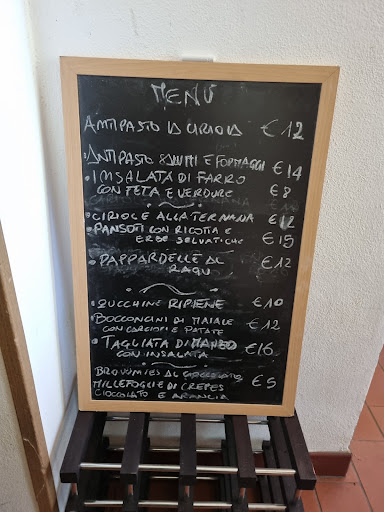 MENÚ
ANTIPASTO LA CIRIOLA €12
• ANTIPASTO SALUMI E FORMAGGI €14
• INSALATA DI FARRO
CON FETA E VERDURE €8
• CIRIOLE ALLA TERNANA €12
• PANSOTI CON RICOTTA E
ERBE SELVATICHE €15
• PAPPARDELLE AL €12
RAGU
• ZUCCHINE RIPIENE €10
• BOCCONCINI DI MAIALE €12
CON CARCIOFI E PATATE
• TAGLIATA DI MANZO €16
CON INSALATA
AL CIOCCOLATO
MILLEFOGLIE DI CREPES €5
CIOCCOLATO E ARANCIA